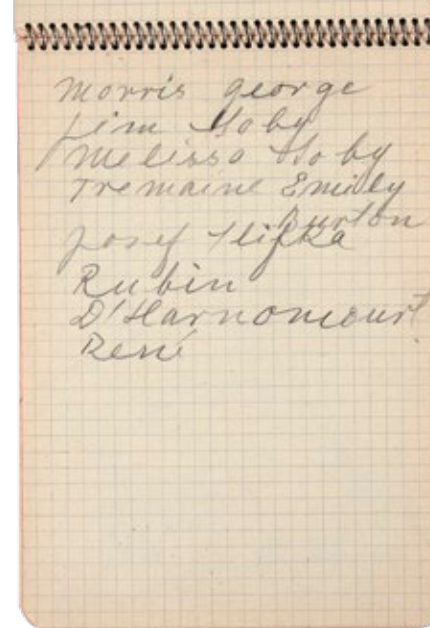 Morris George
Jim Soby
Melissa Soby
Tremaine Emily
Burton
Josef Slifka
Rubin
D'Harnoncourt
René